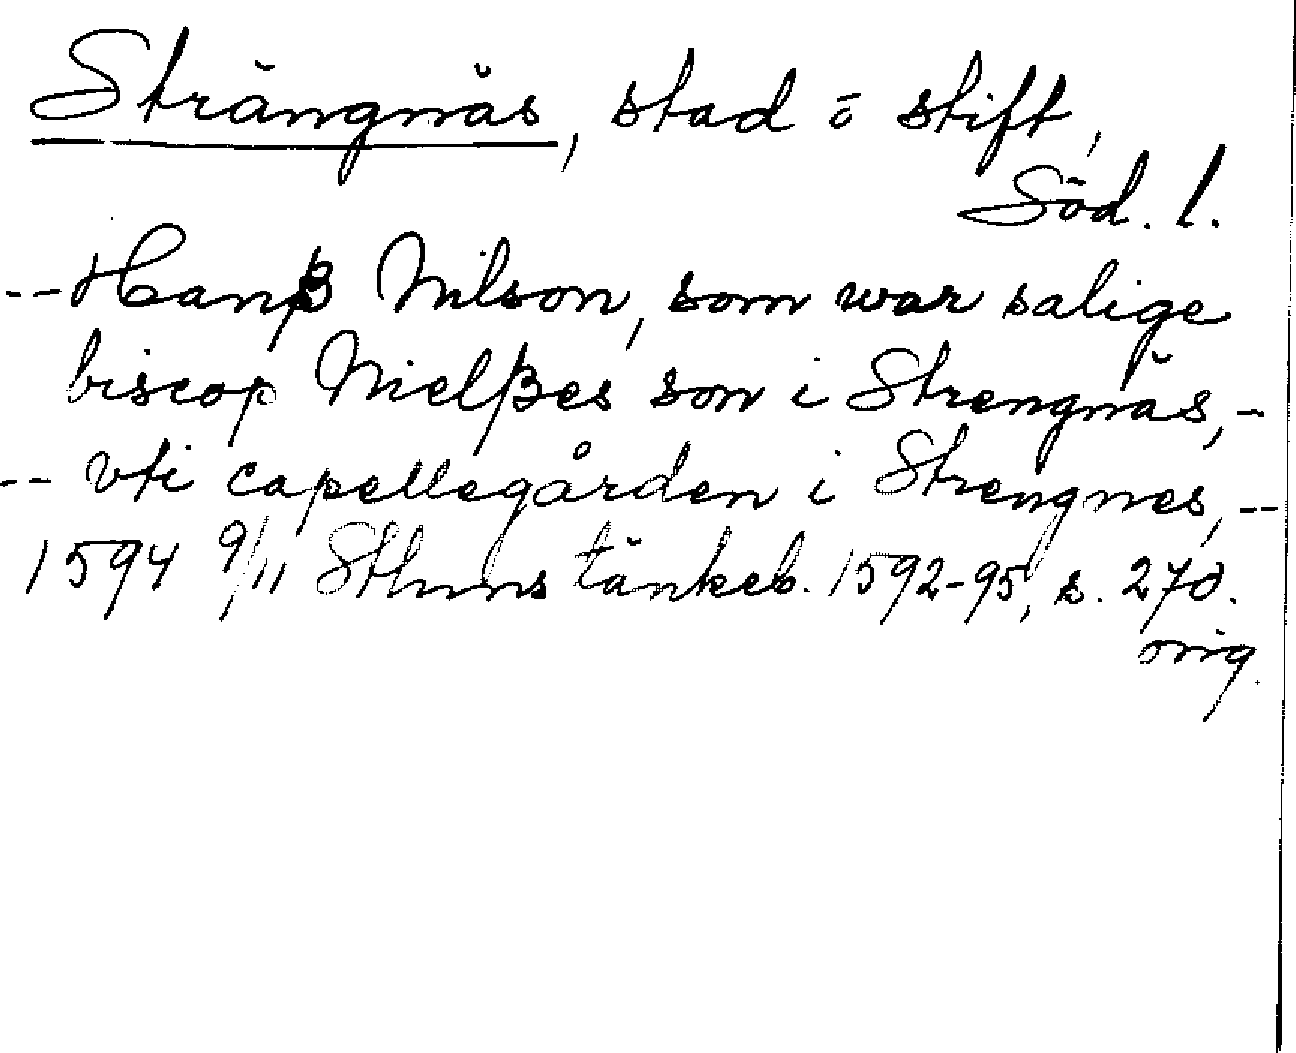 Strängnäs, stad o stift,
Söd. l.
-- Hanß Nilson, som war salige
biscop Nielßes son i Strengnäs, -
-- vti capellegården i Strengnes, --
1594 9/11 Sthms tänkeb. 1592-95, s. 270.
orig.